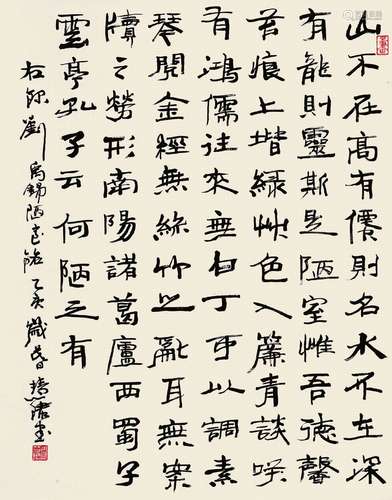 山不在高有僊則名水不在深
有龍則靈斯是陋室惟吾德馨
苔痕上堦綠艸色入簾青談咲
有鴻儒往來無白丁可以調素
琴閱金經無絲竹之亂耳無案
牘之勞形南陽諸葛廬西蜀子
雲亭孔子云何陋之有
右錄劉禹錫陋室銘乙亥歲書